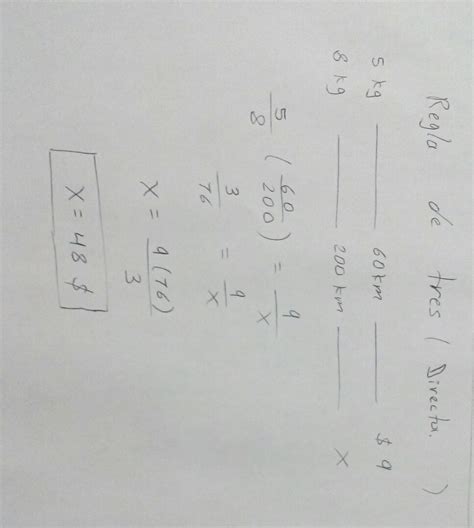 Regla de tres ( Directa. )
5 kg ——— 60 km ——— $ 9
8 kg ——— 200 km ——— x
5/8 (60/200) = 9/x
3/16 = 9/x
x = 9(16)/3
x = 48 $